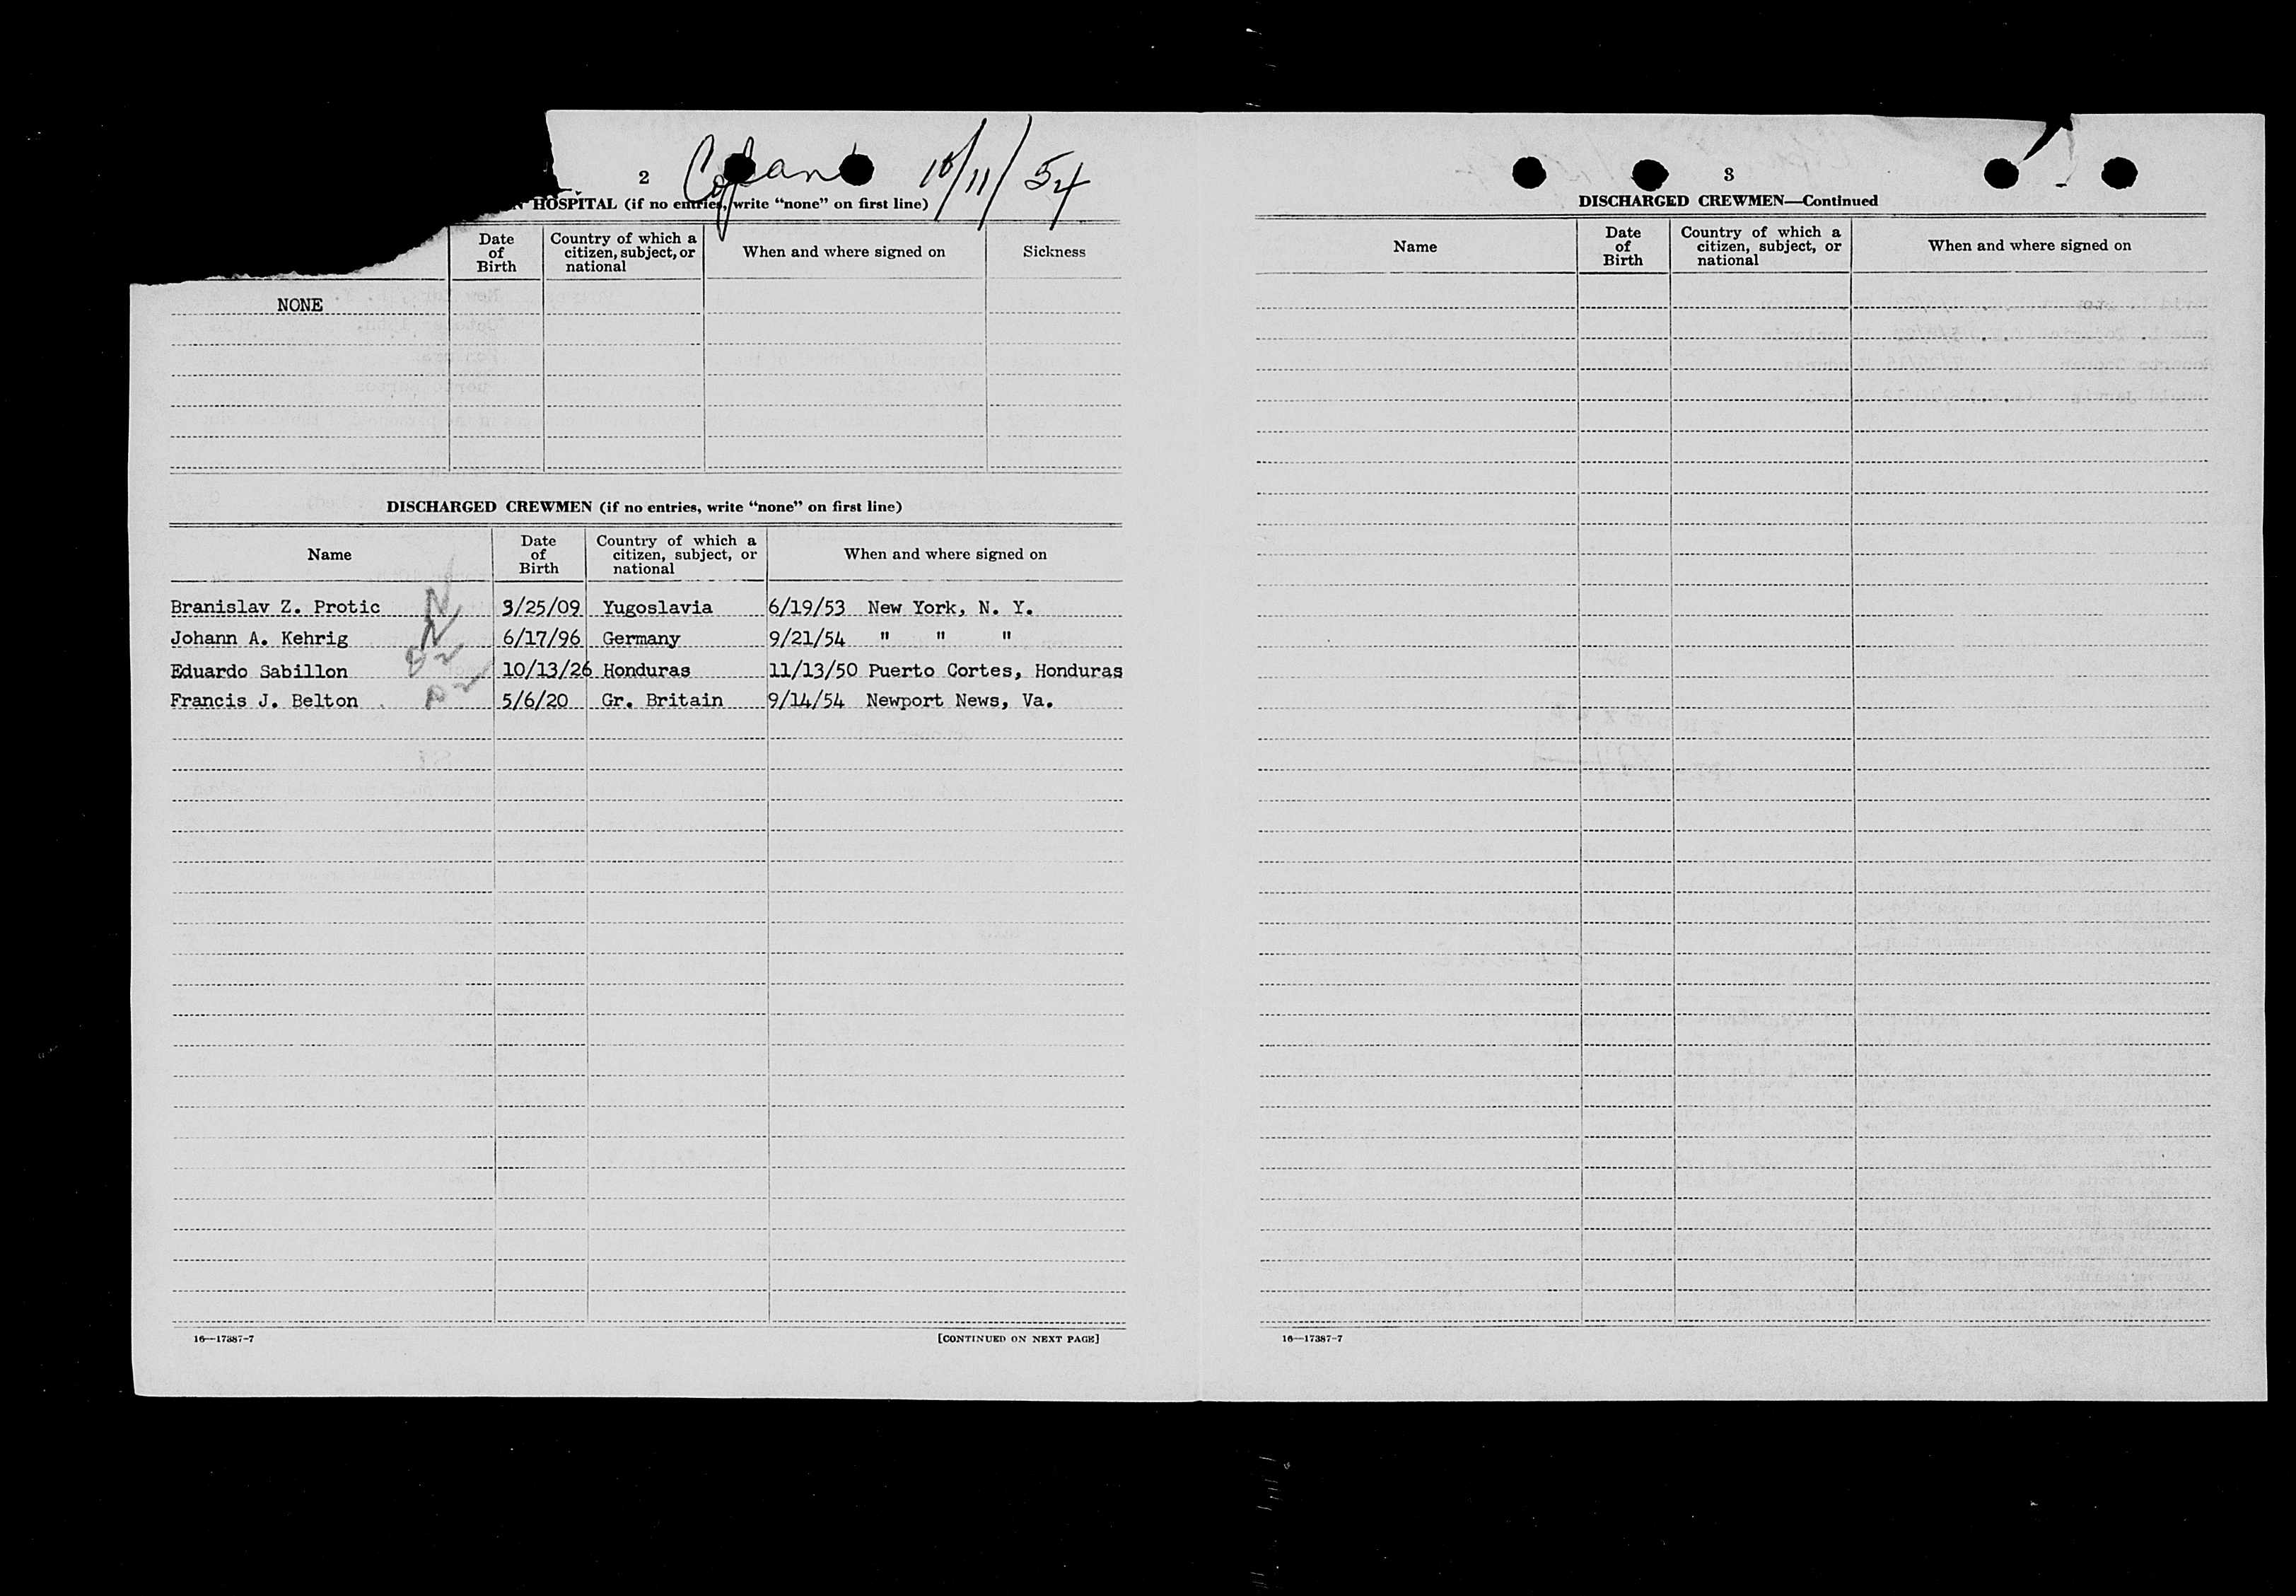 2 Copan 10/11/54
N HOSPITAL (if no entries, write “none” on first line)
Date of Birth
Country of which a citizen, subject, or national
When and where signed on
Sickness
NONE
DISCHARGED CREWMEN (if no entries, write “none” on first line)
Name
Date of Birth
Country of which a citizen, subject, or national
When and where signed on
Branislav Z. Protic N 3/25/09 Yugoslavia 6/19/53 New York, N. Y.
Johann A. Kehrig N 6/17/96 Germany 9/21/54 " " "
Eduardo Sabillon 10/13/26 Honduras 11/13/50 Puerto Cortes, Honduras
Francis J. Belton 5/6/20 Gr. Britain 9/14/54 Newport News, Va.
16—17387-7 [CONTINUED ON NEXT PAGE]
3
DISCHARGED CREWMEN—Continued
Name
Date of Birth
Country of which a citizen, subject, or national
When and where signed on
16—17387-7